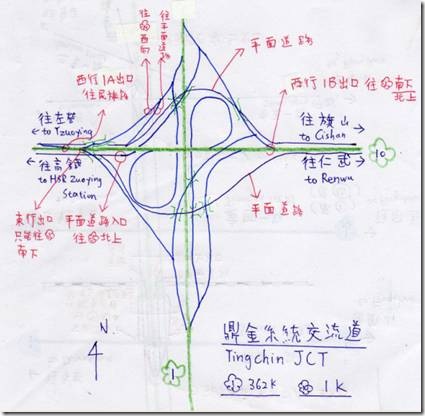 往
①
西
向
往
平
面
道
路
平面道路
西行1A出口
往民族路
西行1B出口 往①南下
北上
往左營
to Tzuoying
往旗山
to Cishan
10
往高鐵
to HSR Zuoying
Station
往仁武
to Renwu
東行出口
只能往①
南下
平面道路入口
往①北上
平面道路
N.
鼎金系統交流道
Tingchin JCT
1
① 362K ⑩ 1K